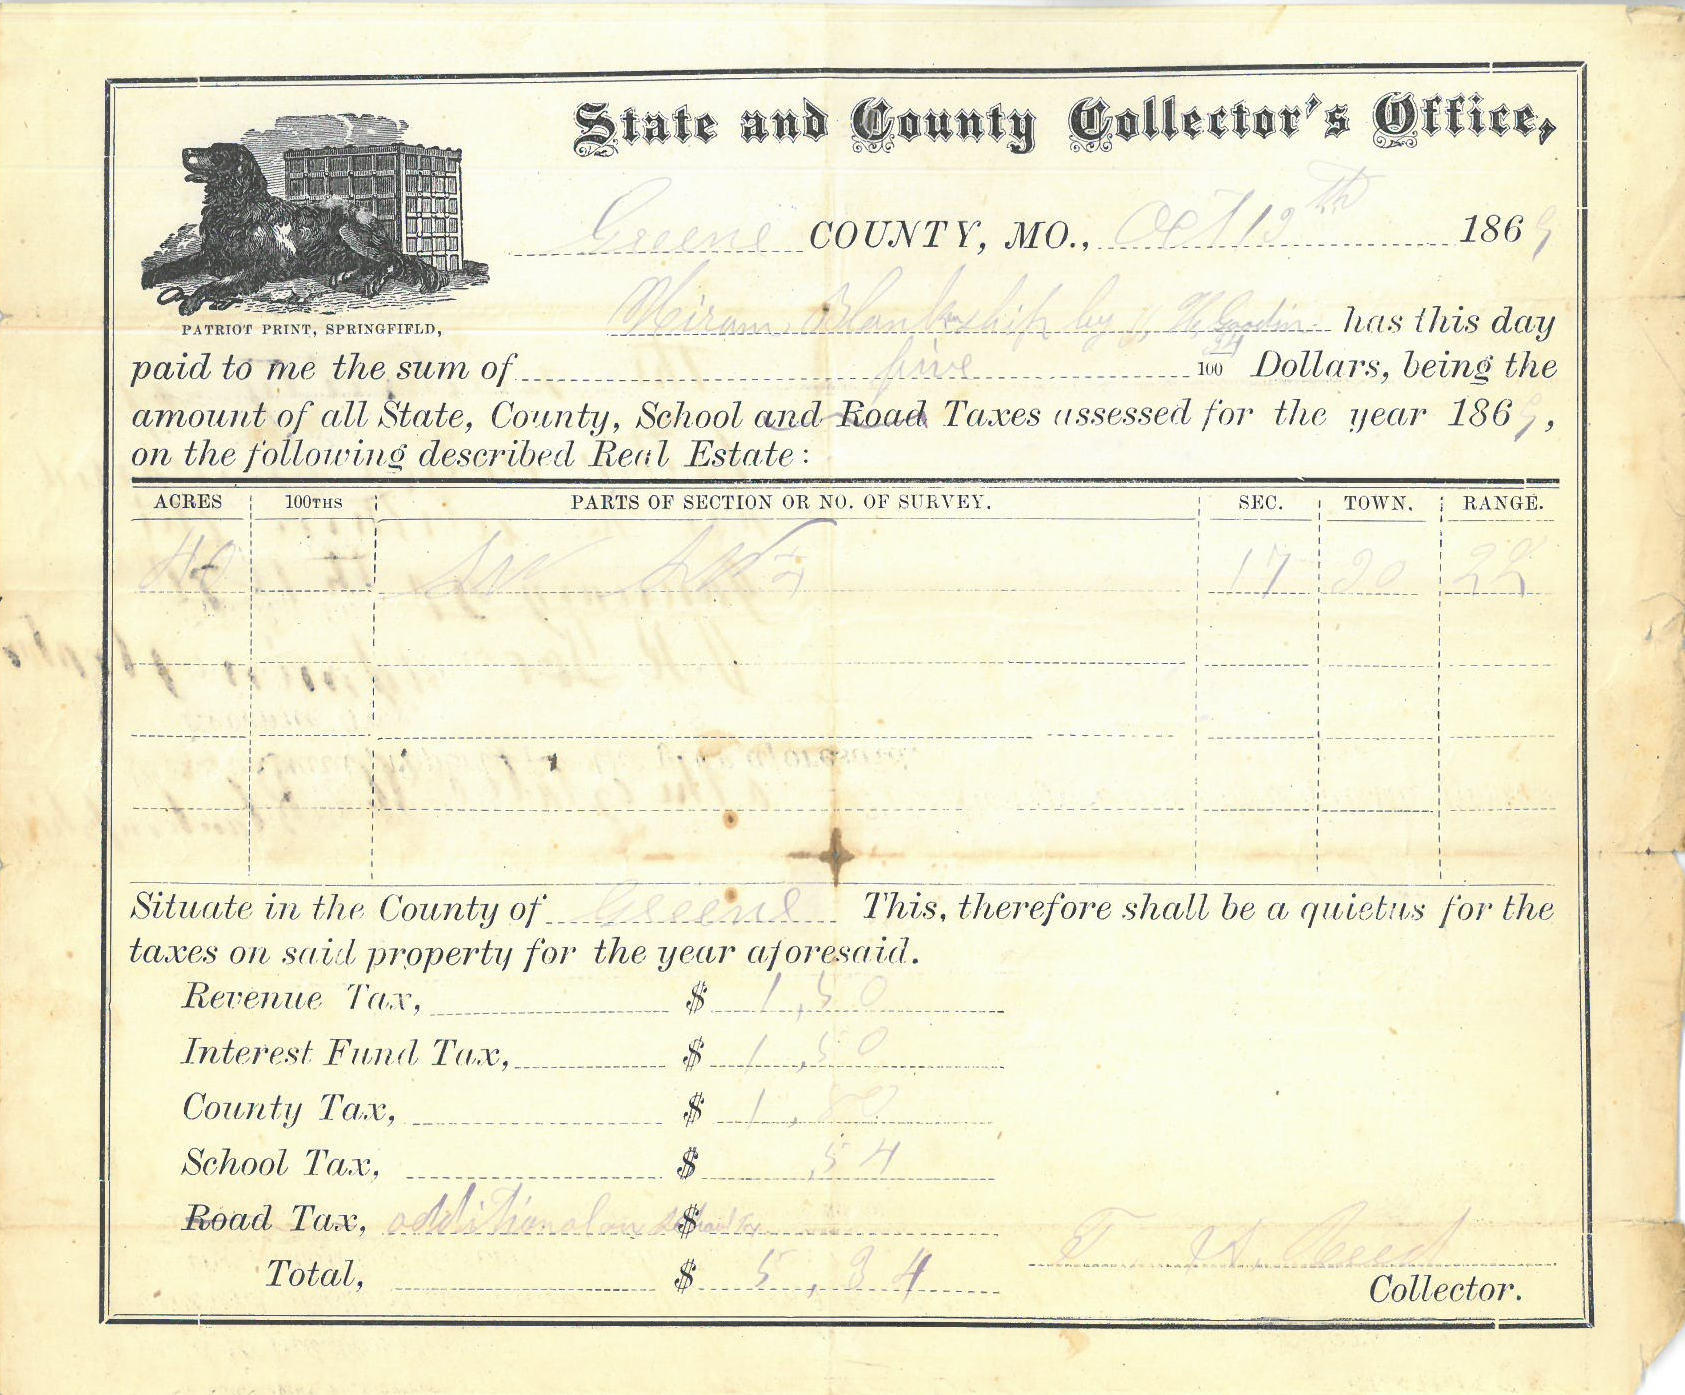 State and County Collector's Office,
Greene COUNTY, MO., Oct 19th 1869
PATRIOT PRINT, SPRINGFIELD,
Hiram Blankenship by has this day
paid to me the sum of five 34/100 Dollars, being the
amount of all State, County, School and Road Taxes assessed for the year 1869,
on the following described Real Estate:
ACRES 100THS PARTS OF SECTION OR NO. OF SURVEY. SEC. TOWN. RANGE.
40 SW 17 30 22
Situate in the County of Greene This, therefore shall be a quietus for the
taxes on said property for the year aforesaid.
Revenue Tax, $ 1,50
Interest Fund Tax, $ 1,50
County Tax, $ 1,80
School Tax, $ ,54
Road Tax, additional $
Total, $ 5,34
Collector.